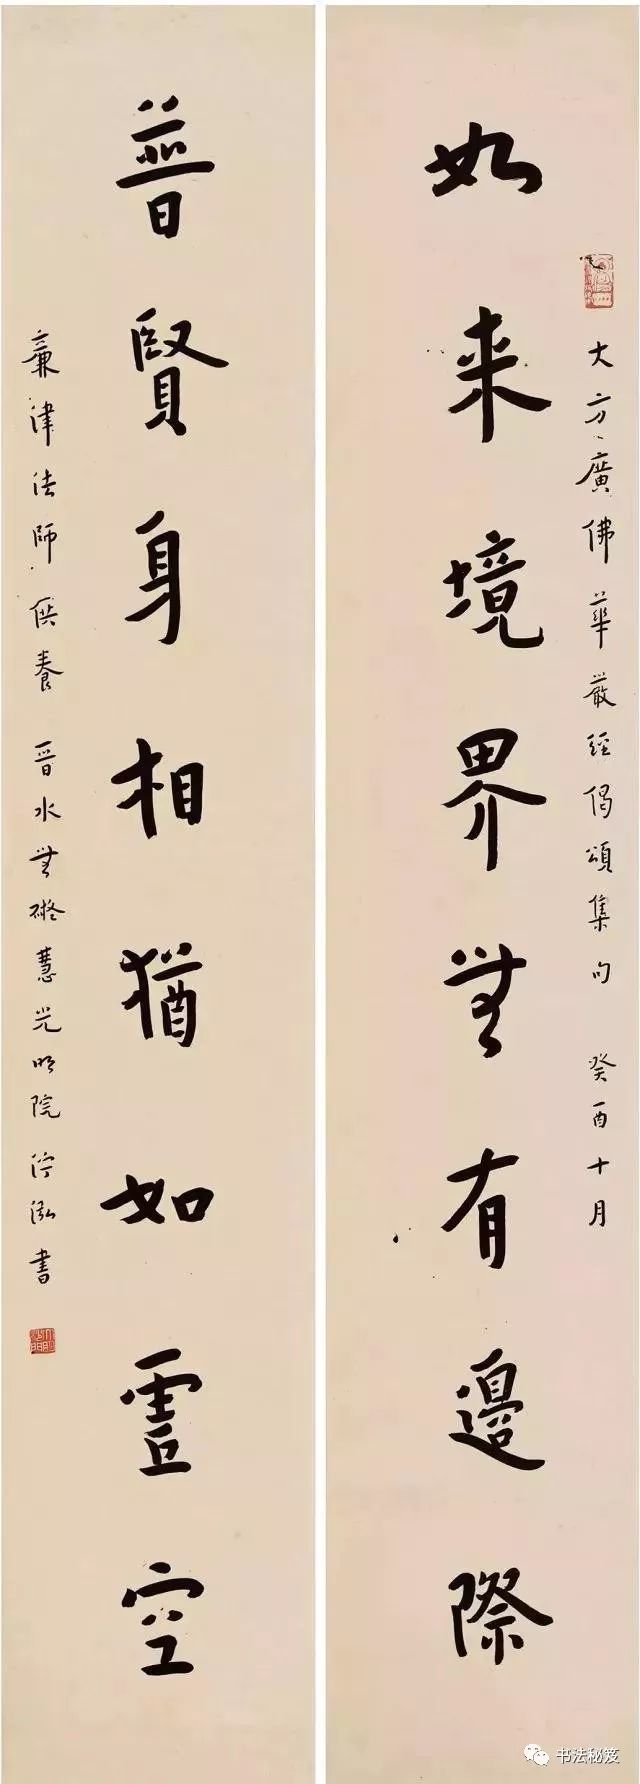 如来境界無有邊際
大方廣佛華嚴經偈頌集句 癸酉十月
普賢身相猶如虛空
廉津法師供養 晉水無礙慧光明院沙泓書
书法秘笈